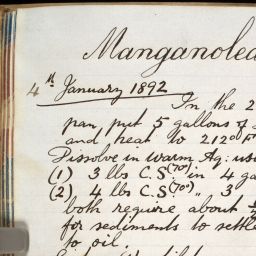 Manganolea
4th January 1892
In the 2
pan, put 5 gallons of
and heat to 212° F
Dissolve in warm Aq: usi
(1) 3 lbs C.S. (70°) in 4 ga
(2) 4 lbs C.S. (70°) " 3
both require about
for sediments to settle
to oil.